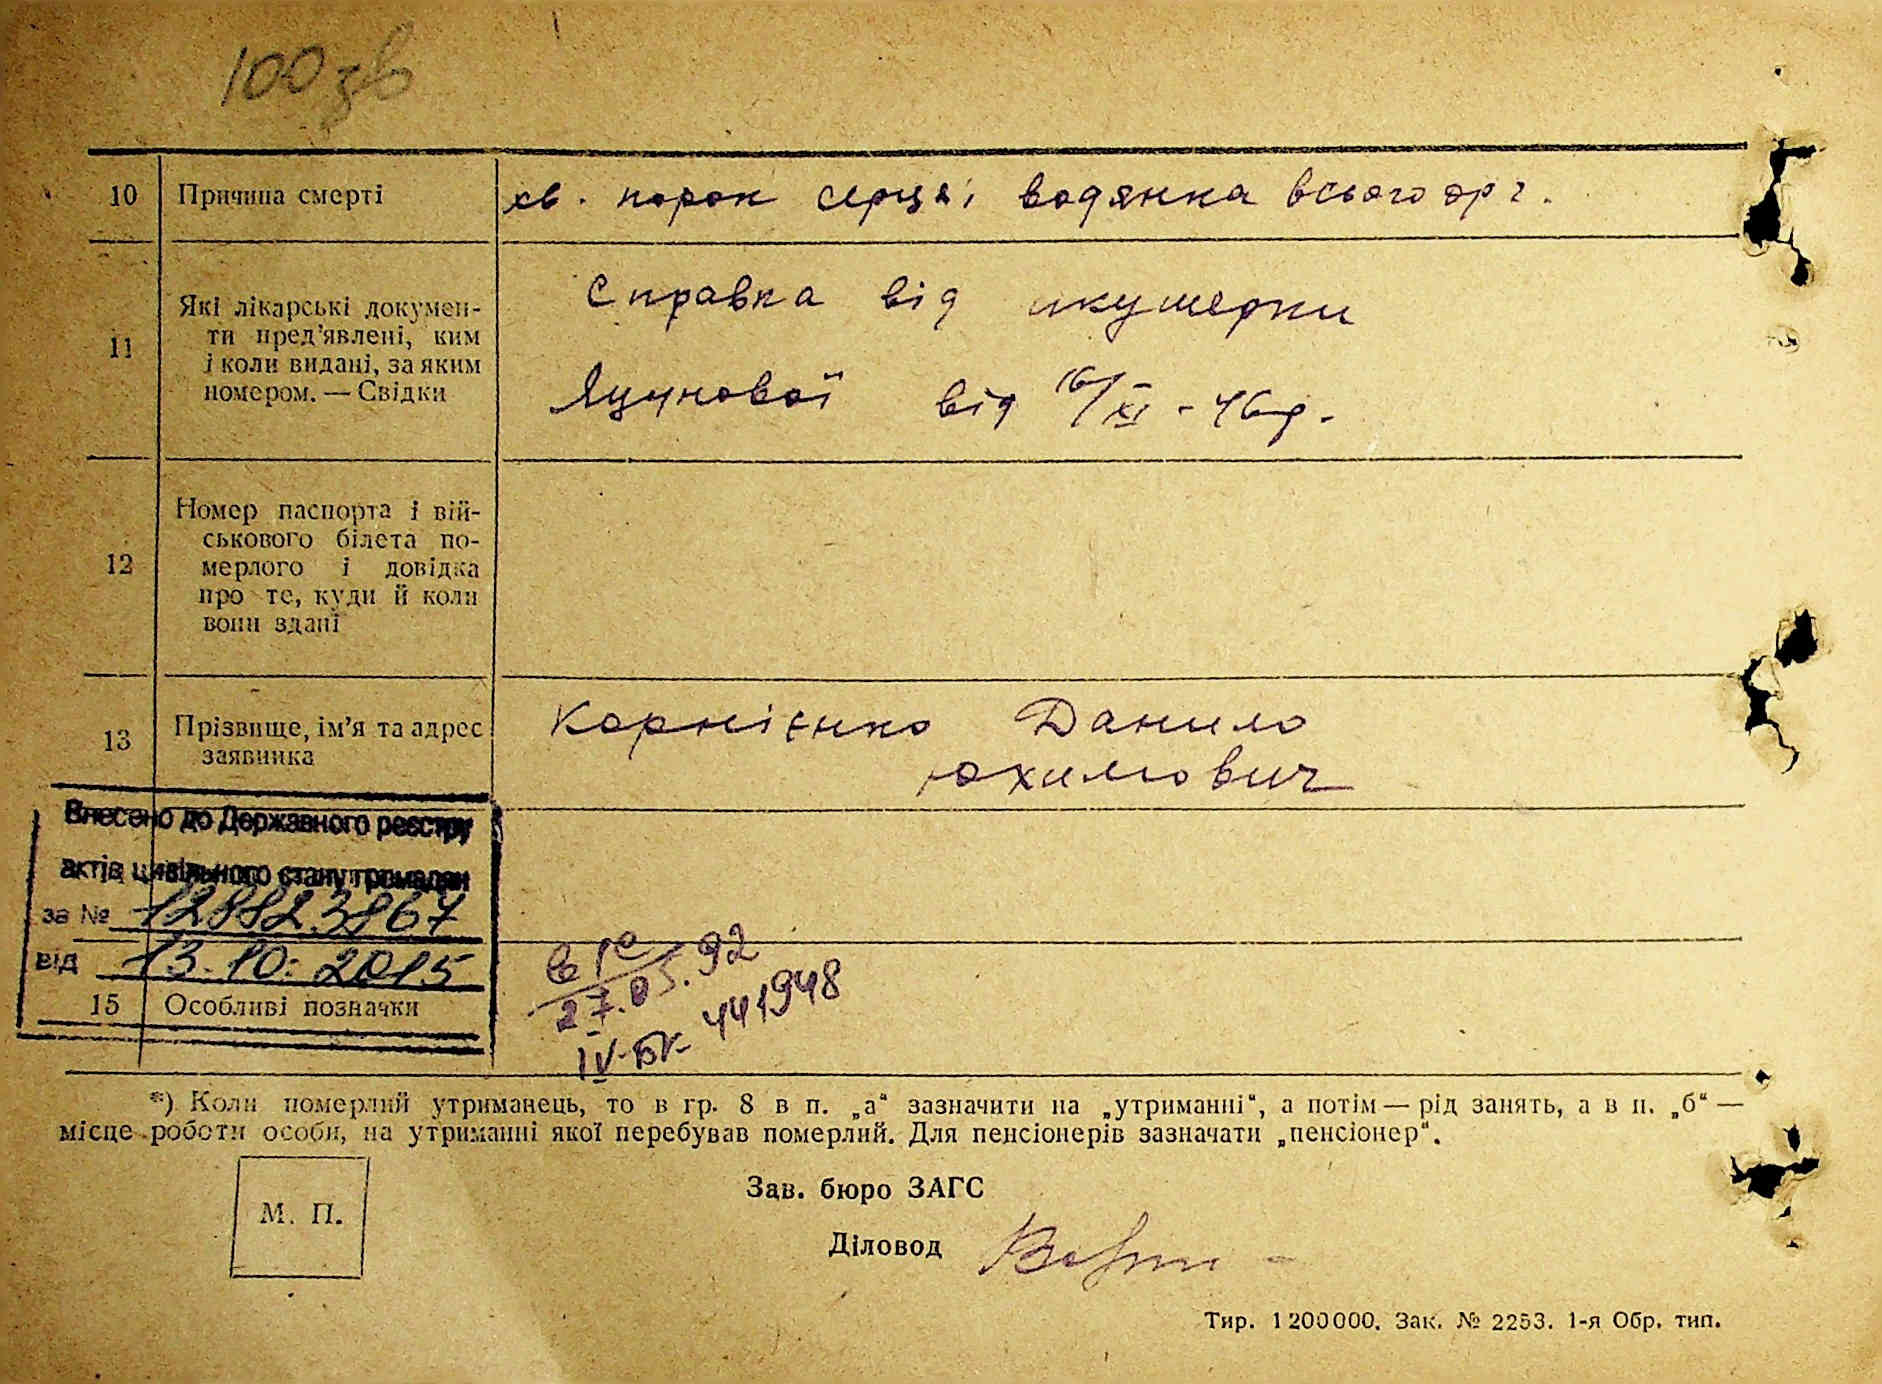 100 зв
10 Причина смерті хв. порок серця, водянка всього орг.
11 Які лікарські докумен-
ти пред’явлені, ким
і коли видані, за яким
номером. — Свідки
Справка від акушерки
Яцунової від 16/XI - 46р.
12 Номер паспорта і вій-
ськового білета по-
мерлого і довідка
про те, куди й коли
вони здані
13 Прізвище, ім’я та адрес
заявника
Корнієнко Данило
Юхимович
Внесено до Державного реєстру
актів цивільного стану громадян
за № 128823867
від 13.10.2015
15 Особливі позначки
27.05.92
IV-БК 441948
*) Коли померлий утриманець, то в гр. 8 в п. „а“ зазначити на „утриманні“, а потім — рід занять, а в п. „б“ —
місце роботи особи, на утриманні якої перебував померлий. Для пенсіонерів зазначати „пенсіонер“.
М. П.
Зав. бюро ЗАГС
Діловод
Тир. 1 200 000. Зак. № 2253. 1-я Обр. тип.